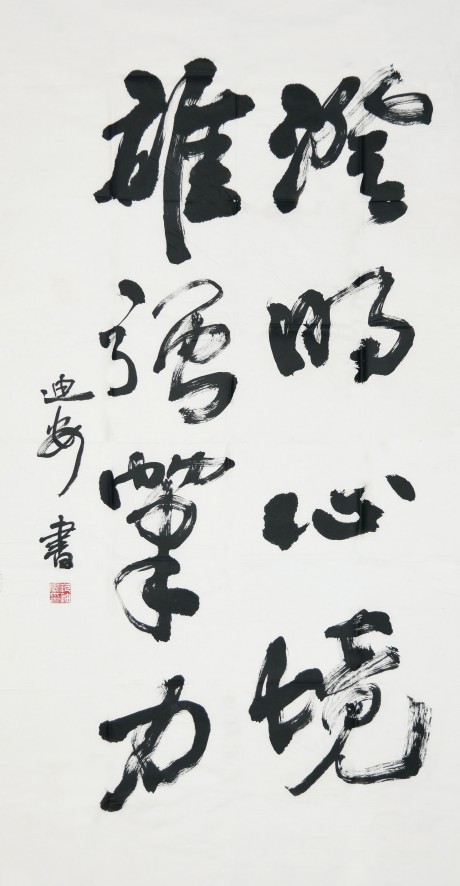 澄明心境
雄強筆力
迪安書